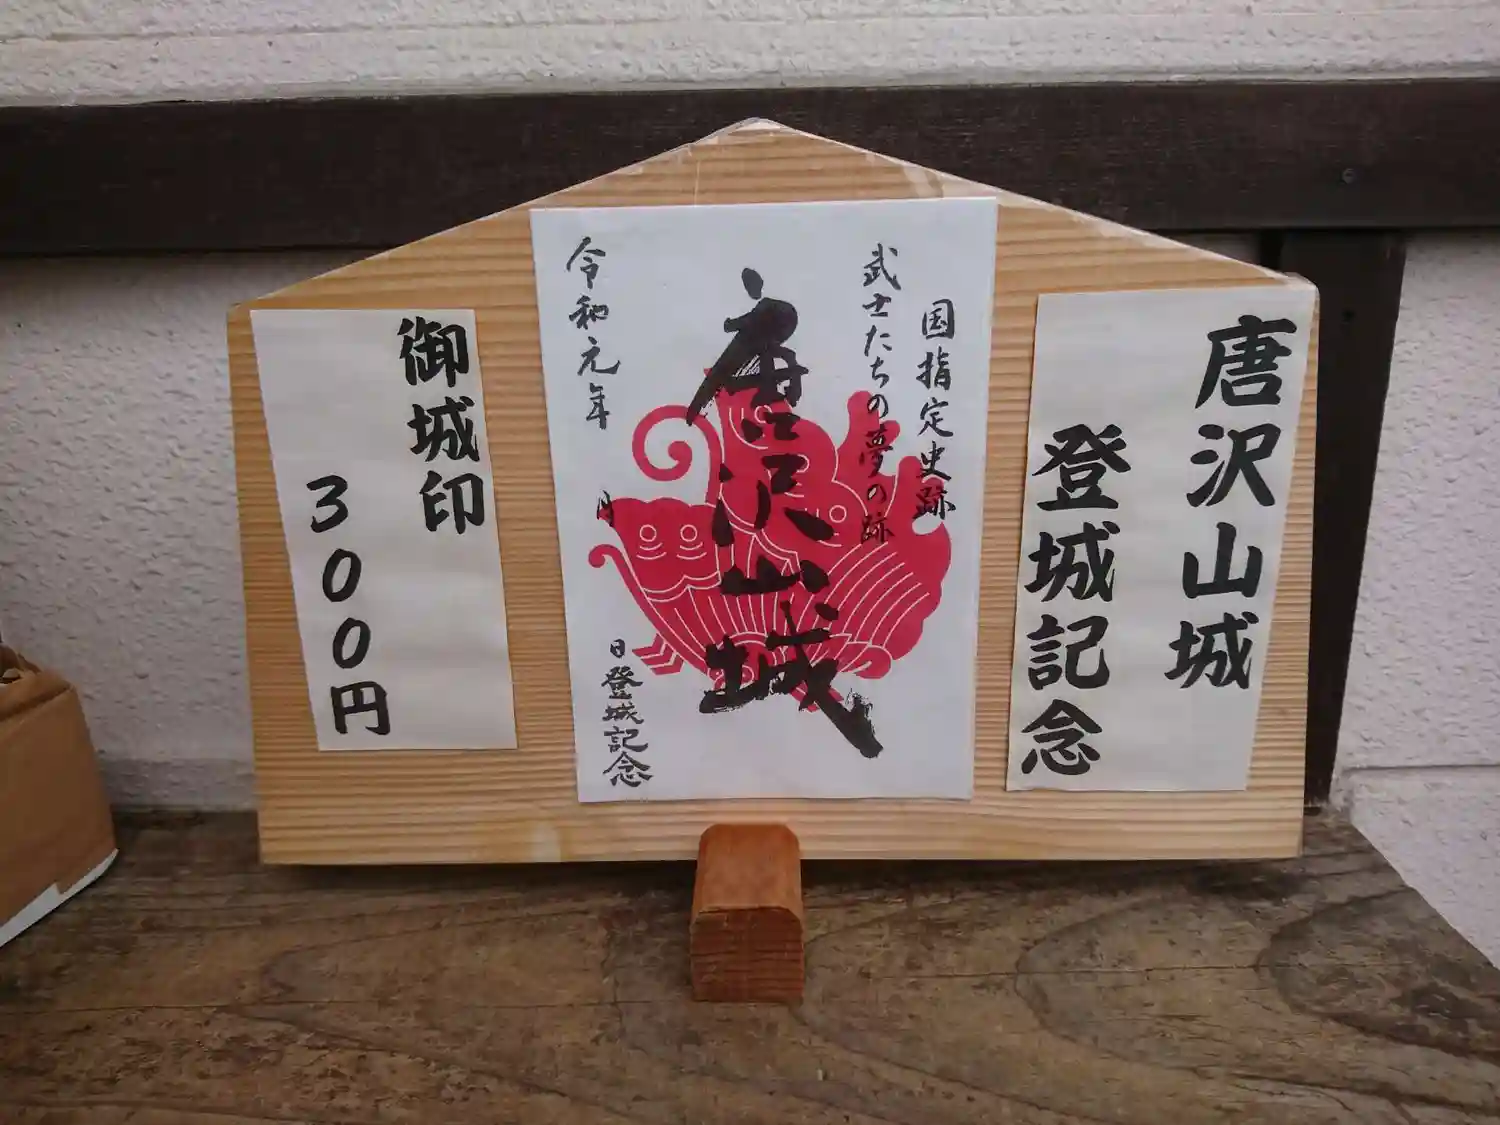 唐沢山城
登城記念
国指定史跡
武士たちの夢の跡
唐沢山城
令和元年 月 日登城記念
御城印
300円